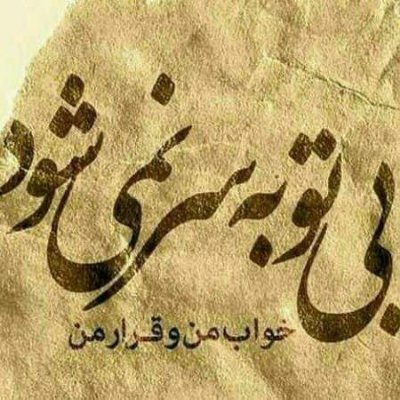 بی تو به سر نمی شود
خواب من و قرار من